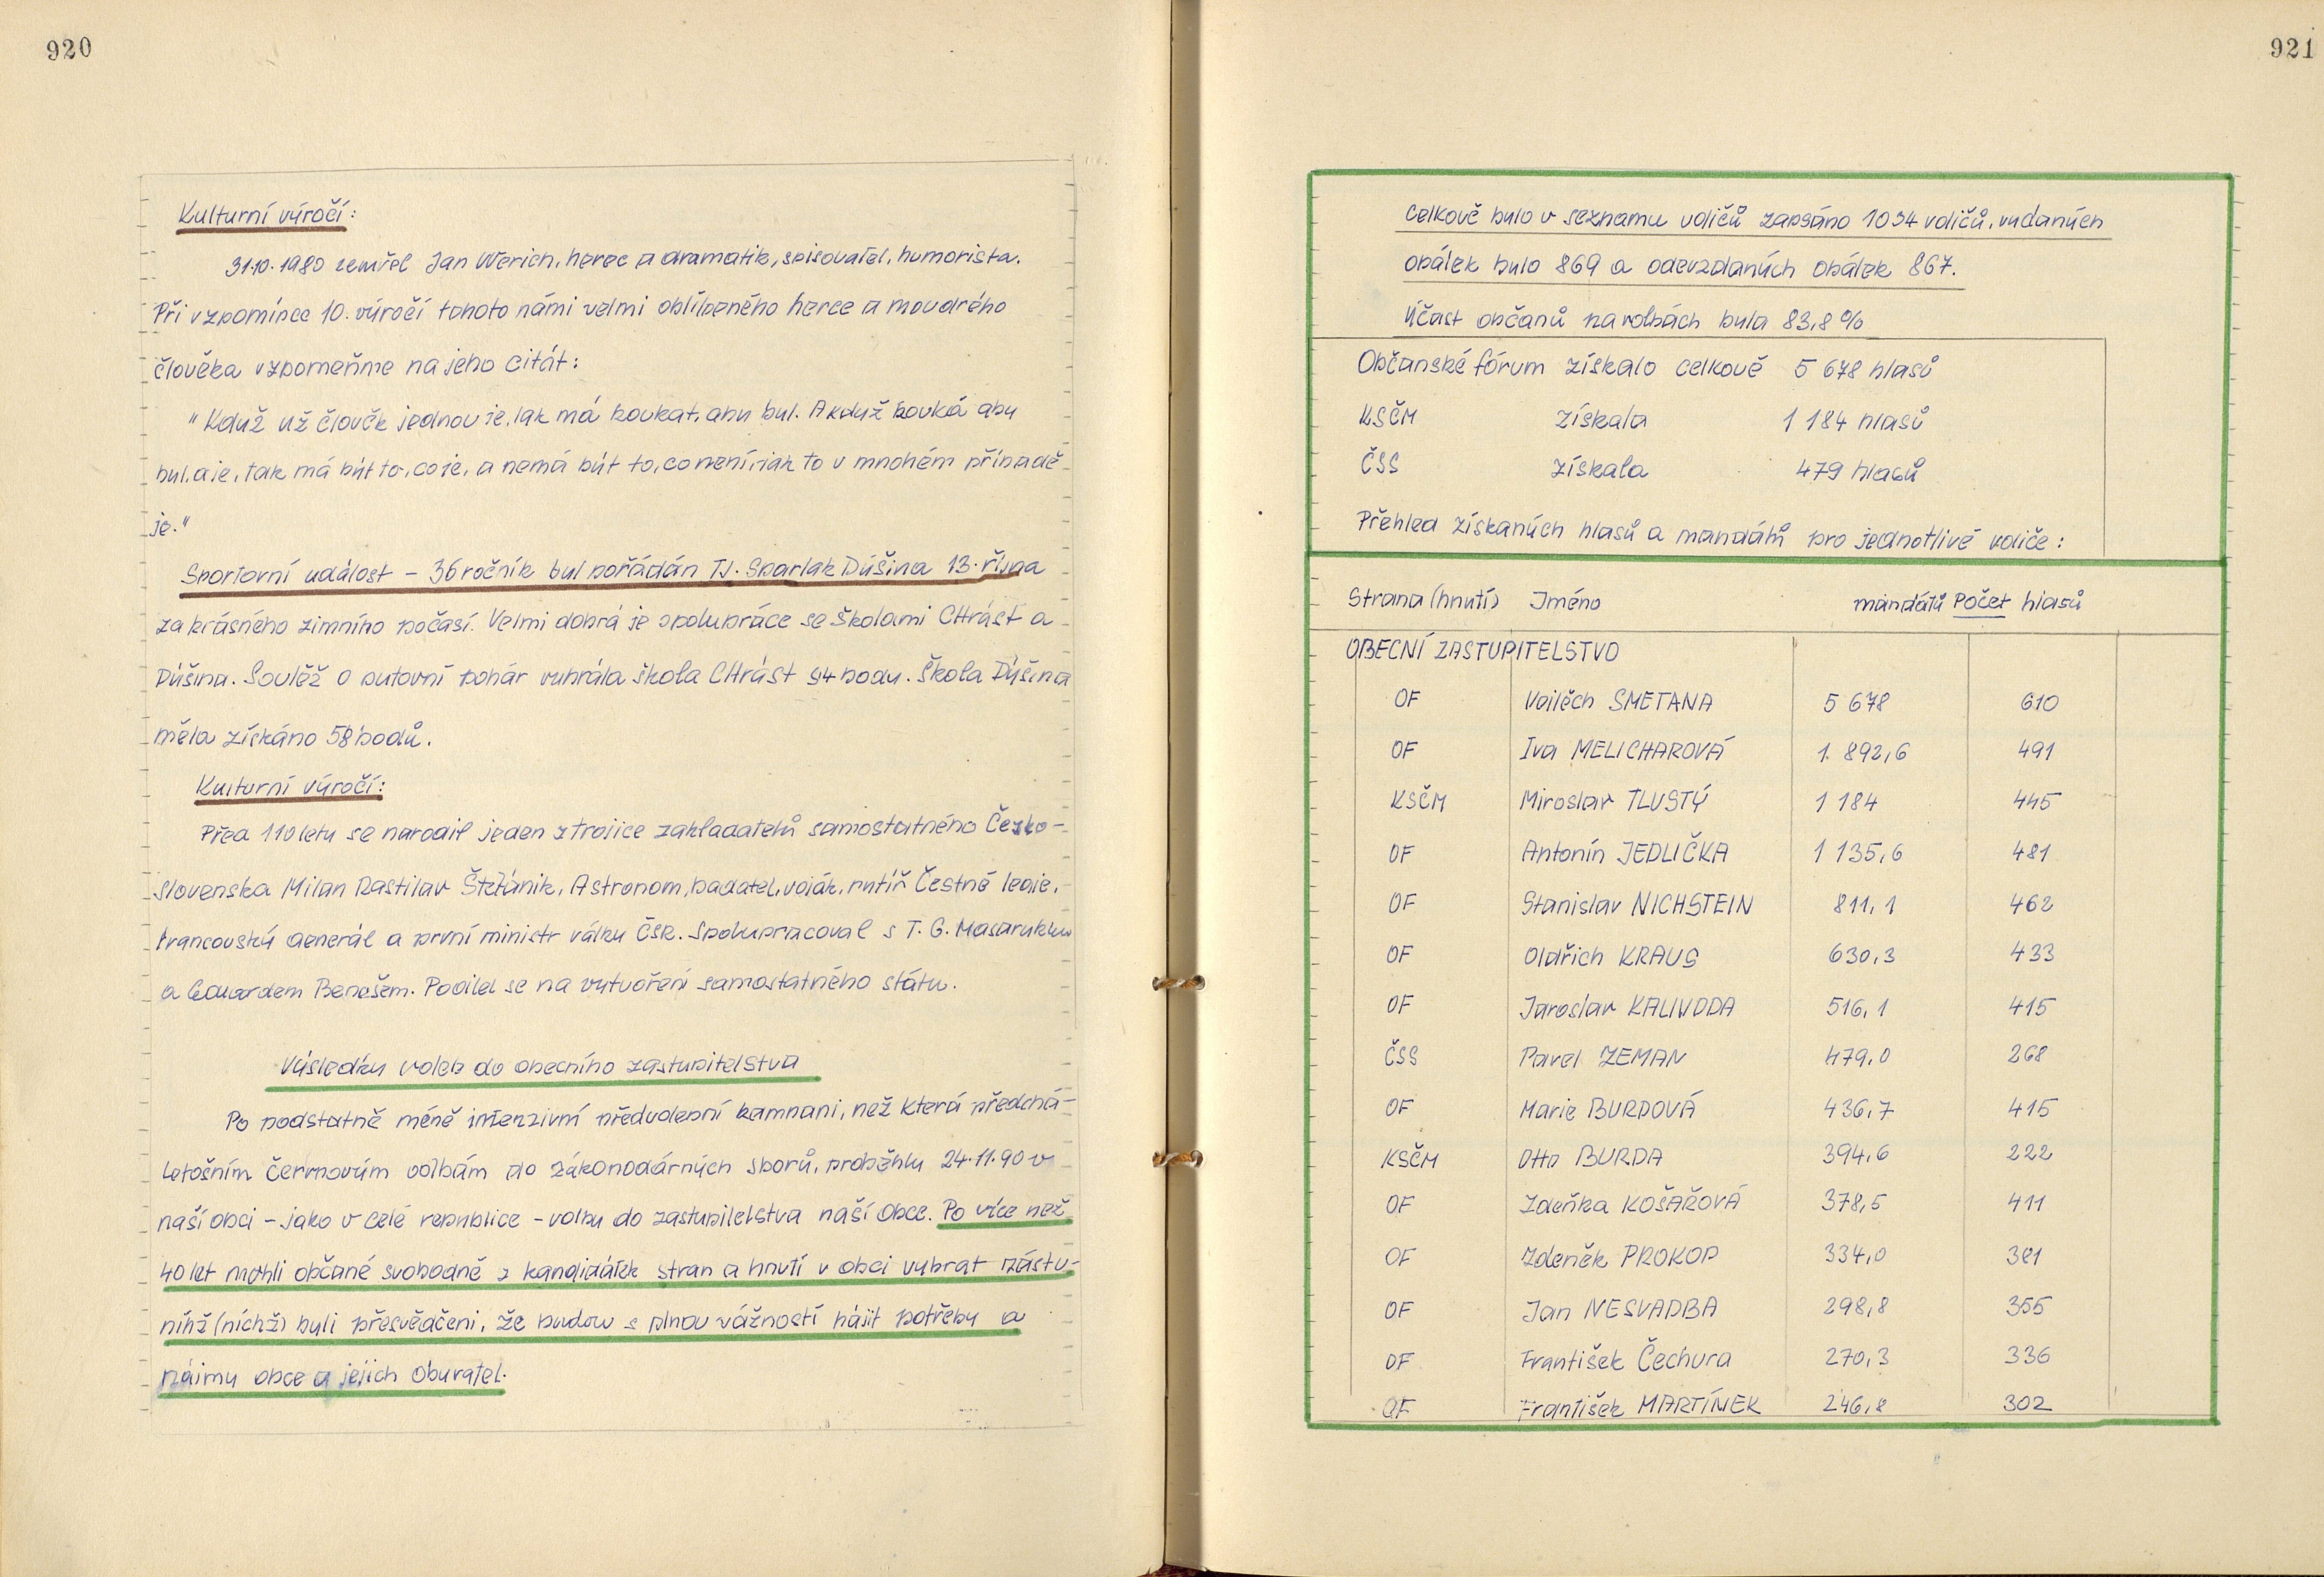 920
Kulturní výročí:
31.10.1980 zemřel Jan Werich, herec a dramatik, spisovatel, humorista.
Při vzpomínce 10. výročí tohoto námi velmi oblíbeného herce a moudrého
člověka vzpomeňme na jeho citát:
"Když už člověk jednou je, tak má koukat, aby byl. A když kouká aby
byl, a je, tak má být to, co je, a nemá být to, co není, jak to v mnohém případě
je."
Sportovní událost - 36 ročník byl pořádán TJ. Spartak Dýšina 13. října
za krásného zimního počasí. Velmi dobrá je spolupráce se školami CHrást a
Dýšina. Soutěž o putovní pohár vyhrála škola CHrást 94 body. Škola Dýšina
měla získáno 58 bodů.
Kulturní výročí:
Před 110 lety se narodil jeden z trojice zakladatelů samostatného Česko-
slovenska Milan Rastilav Štefánik, Astronom, badatel, voják, rytíř Čestné legie,
francouzský generál a první ministr války ČSR. Spolupracoval s T. G. Masarykem
a Eduardem Benešem. Podílel se na vytvoření samostatného státu.
Výsledky voleb do obecního zastupitelstva
Po podstatně méně intenzivní předvolební kampani, než která předchá-
letošním červnovým volbám do zákonodárných sborů, proběhly 24.11.90 v
naší obci - jako v celé republice - volby do zastupitelstva naší obce. Po více než
40 let mohli občané svobodně z kandidátek stran a hnutí v obci vybrat zástu-
nihž (nichž) byli přesvědčeni, že budou s plnou vážností hájit potřeby a
zájmy obce a jejich obyvatel.
921
Celkově bylo v seznamu voličů zapsáno 1034 voličů, vydaných
obálek bylo 869 a odevzdaných obálek 867.
Účast občanů na volbách byla 83,8 %
Občanské fórum získalo celkově 5 678 hlasů
KSČM získala 1 184 hlasů
ČSS získala 479 hlasů
Přehled získaných hlasů a mandátů pro jednotlivé voliče:
Strana (hnutí) Jméno mandátů Počet hlasů
OBECNÍ ZASTUPITELSTVO
OF Vojtěch SMETANA 5 678 610
OF Iva MELICHAROVÁ 1. 892,6 491
KSČM Miroslav TLUSTÝ 1 184 445
OF Antonín JEDLIČKA 1 135,6 481
OF Stanislav NICHSTEIN 811,1 462
OF Oldřich KRAUS 630,3 433
OF Jaroslav KALIVODA 516,1 415
ČSS Pavel ZEMAN 479,0 268
OF Marie BURDOVÁ 436,7 415
KSČM Otto BURDA 394,6 222
OF Zdeňka KOŠAŘOVÁ 378,5 411
OF Zdeněk PROKOP 334,0 381
OF Jan NESVADBA 298,8 355
OF František Čechura 270,3 336
OF František MARTÍNEK 246,8 302